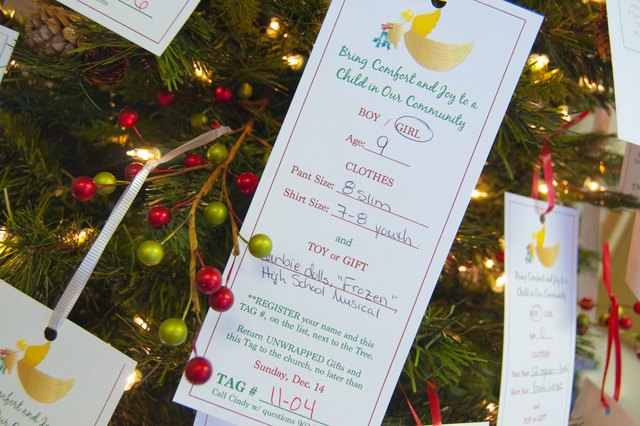 Bring Comfort and Joy to a
Child in Our Community
BOY / GIRL
Age: 9
CLOTHES
Pant Size: 8 slim
Shirt Size: 7-8 youth
and
TOY or GIFT
dolls, "Frozen"
High School Musical
**REGISTER your name and this
TAG #, on the list, next to the Tree.
Return UNWRAPPED Gifts and
this Tag to the church, no later than
Sunday, Dec. 14
TAG # 11-04
Call Cindy w/ questions
Bring Comfort and Joy to a
Child in Our Community
BOY / GIRL
Age:
CLOTHES
Pant Size:
Shirt Size:
and
TOY or GIFT